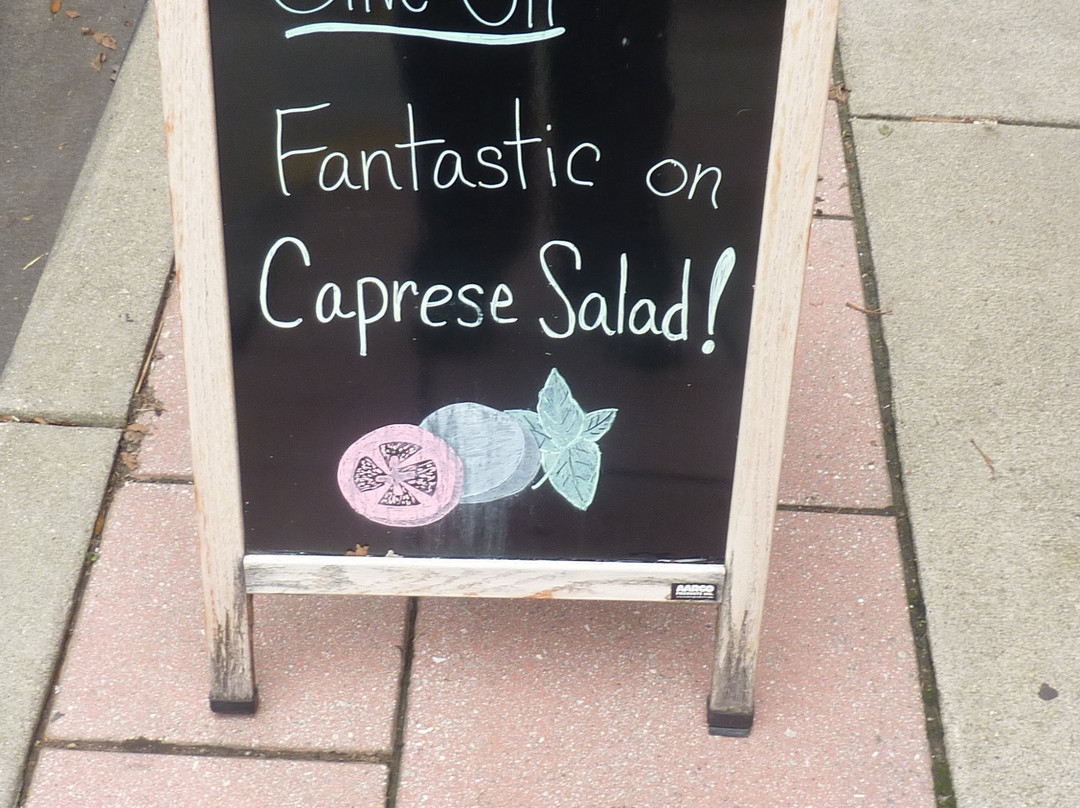 Olive Oil
Fantastic on
Caprese Salad!
AARCO